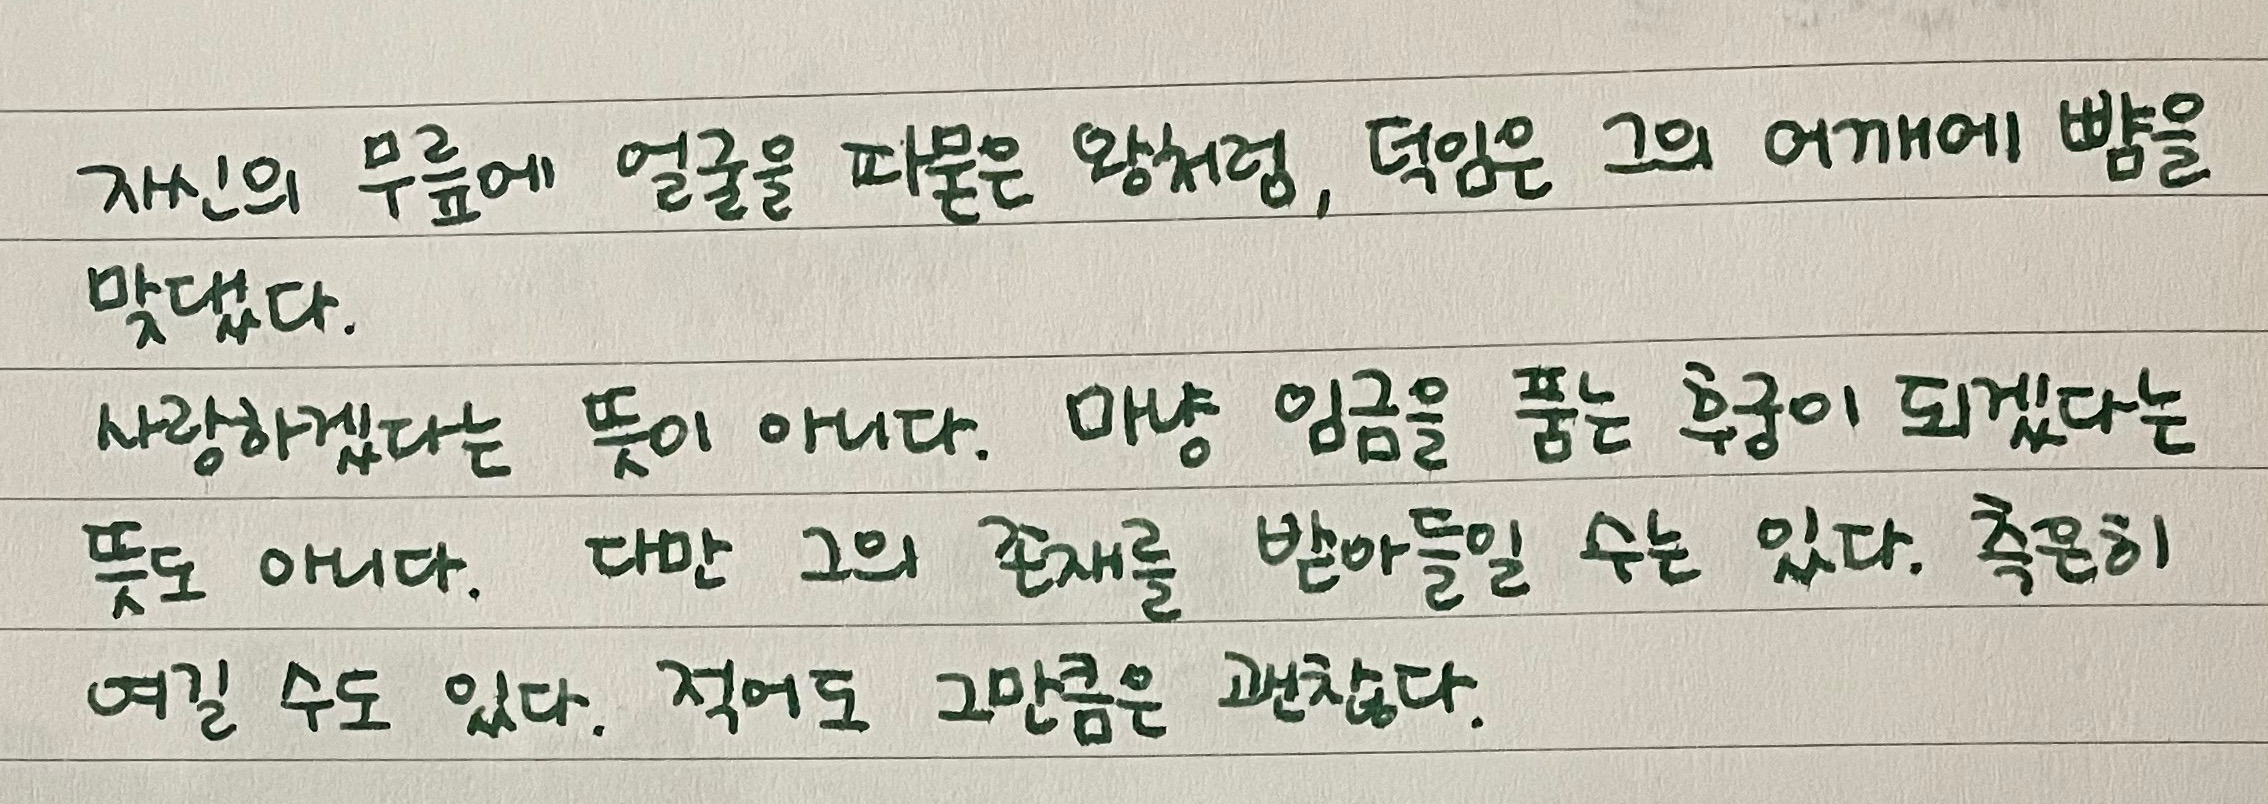 자신의 무릎에 얼굴을 파묻은 왕처럼, 덕임은 그의 어깨에 뺨을
맞댔다.
사랑하겠다는 뜻이 아니다. 마냥 임금을 품는 후궁이 되겠다는
뜻도 아니다. 다만 그의 존재를 받아들일 수는 있다. 측은히
여길 수도 있다. 적어도 그만큼은 괜찮다.